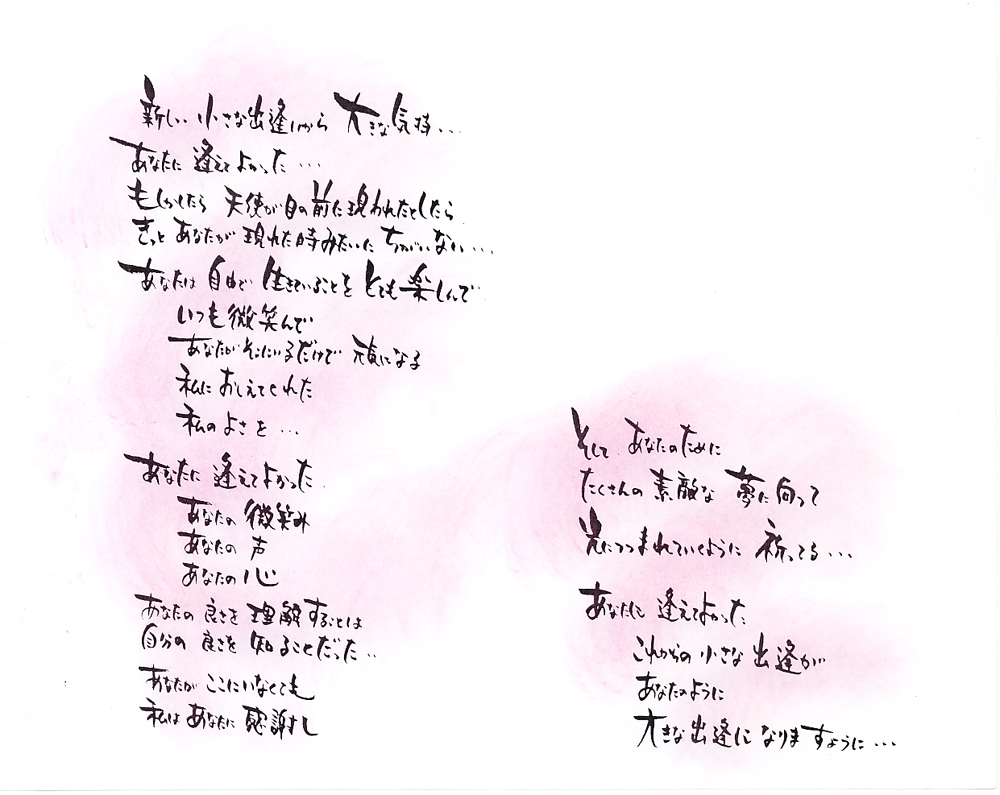 新しい 小さな出逢いから 大きな気持...
あなたに 逢えてよかった...
もしかしたら 天使が目の前に現われたとしたら
きっと あなたが 現れた時みたいに ちがいない...
あなたは 自由で 生きていることを とても楽しんで
いつも微笑んで
あなたがそこにいるだけで 元気になる
私に おしえてくれた
私の よさを...
あなたに 逢えてよかった
あなたの 微笑み
あなたの 声
あなたの 心
あなたの 良さを 理解することは
自分の 良さを 知ることだった..
あなたが ここにいなくても
私は あなたに 感謝し
そして あなたのために
たくさんの 素敵な 夢に向って
光につつまれていくように 祈ってる...
あなたに 逢えてよかった
これからの 小さな 出逢が
あなたのように
大きな 出逢に なりますように...